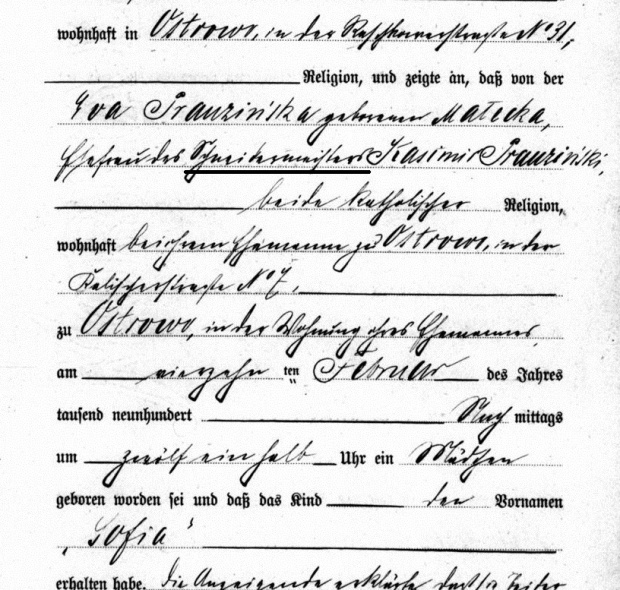 wohnhaft in Ostrowo, in der Raschkowerstraße No 31,
Religion, und zeigte an, daß von der
Eva Franzińska geborenen Małecka,
Ehefrau des Schneidermeisters Kasimir Franziński,
beide katholischer Religion,
wohnhaft bei ihrem Ehemanne zu Ostrowo, in der
Kalischerstraße No 7,
zu Ostrowo, in der Wohnung ihres Ehemannes
am vierzehn ten Februar des Jahres
tausend neunhundert Nach mittags
um zwölf ein halb Uhr ein Mädchen
geboren worden sei und daß das Kind den Vornamen
„Sofia“
erhalten habe. Die Anzeigende erklärte, daß sie bei der